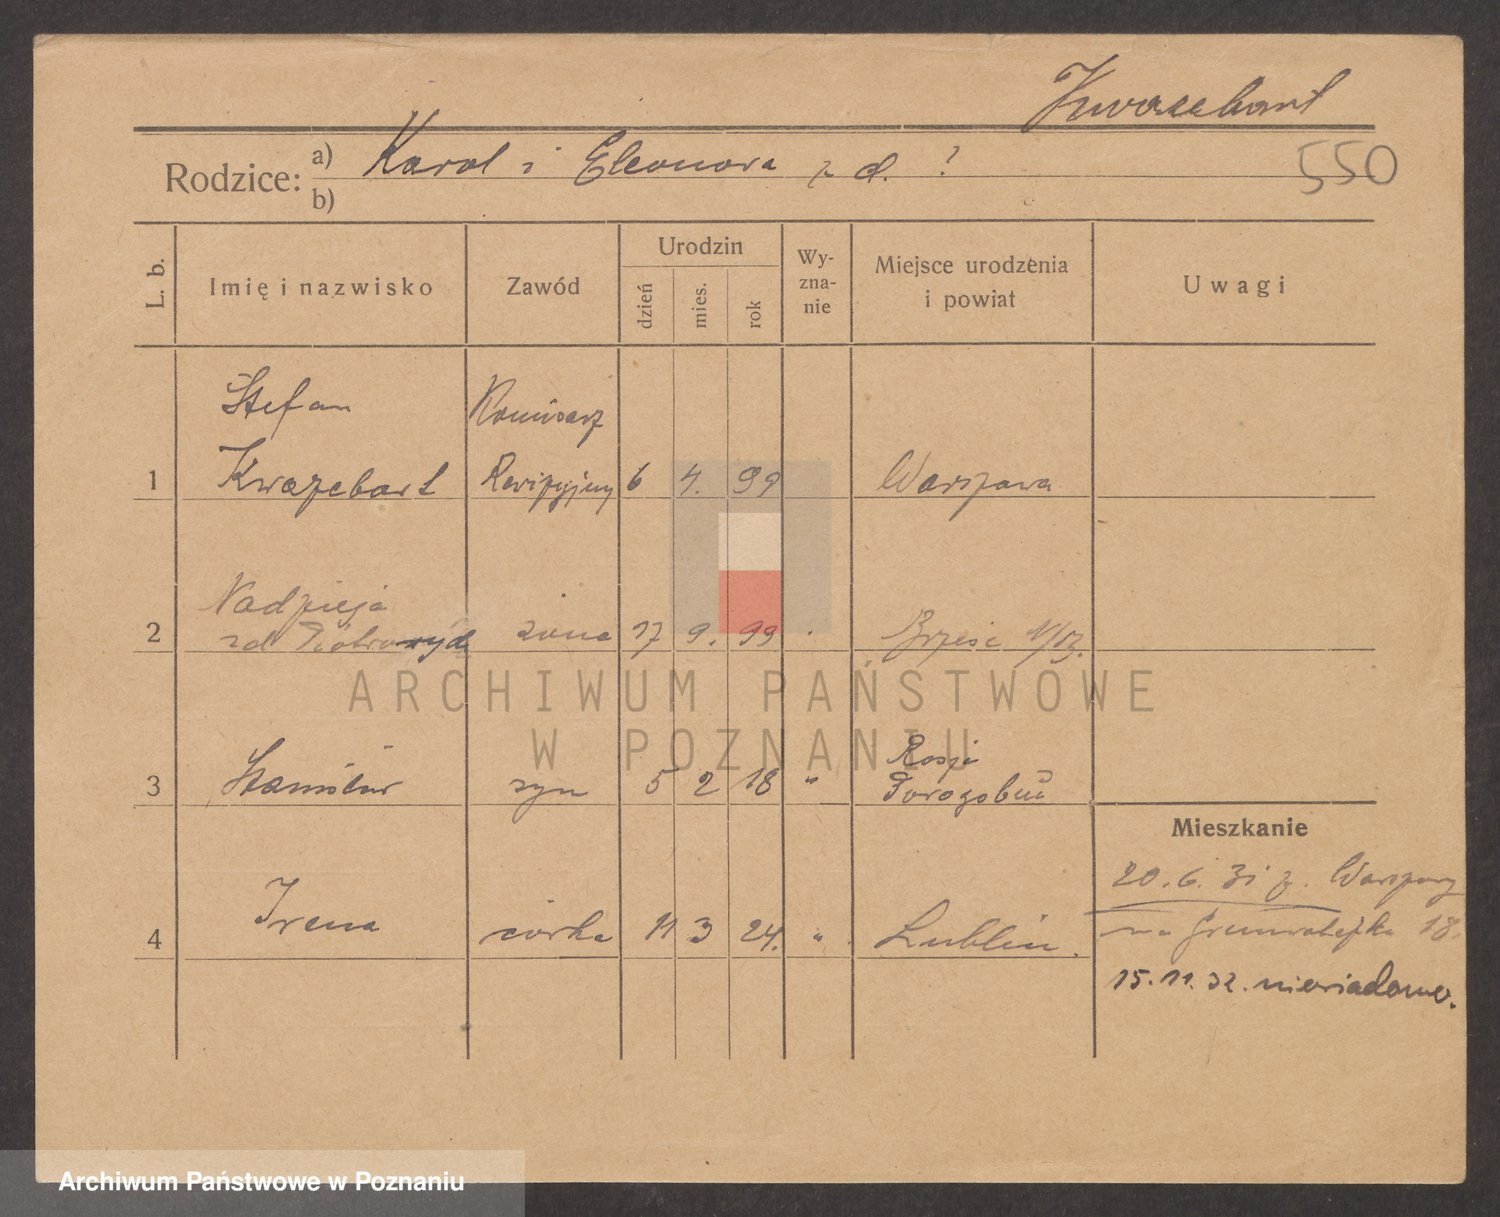 Kwaszebart
Rodzice: a) Karol i Eleonora z d. ?
b)
550
L. b.
Imię i nazwisko
Zawód
Urodzin
dzień
mies.
rok
Wy-
zna-
nie
Miejsce urodzenia
i powiat
Uwagi
Stefan Komisarz
1 Kwaszebart Rewizyjny 6 4. 99 Warszawa
Nadzieja
2 zd żona 17 9. 99 Brześć n/B.
Rosja
3 Stanisław syn 5 2 18 " Dorogobuż
Mieszkanie
20.6.31 z. Warszawy
4 Irena córka 11 3 24. " Lublin.
na Grunwaldzka 18.
15.11.32. niewiadomo.
ARCHIWUM PAŃSTWOWE
W POZNANIU
Archiwum Państwowe w Poznaniu